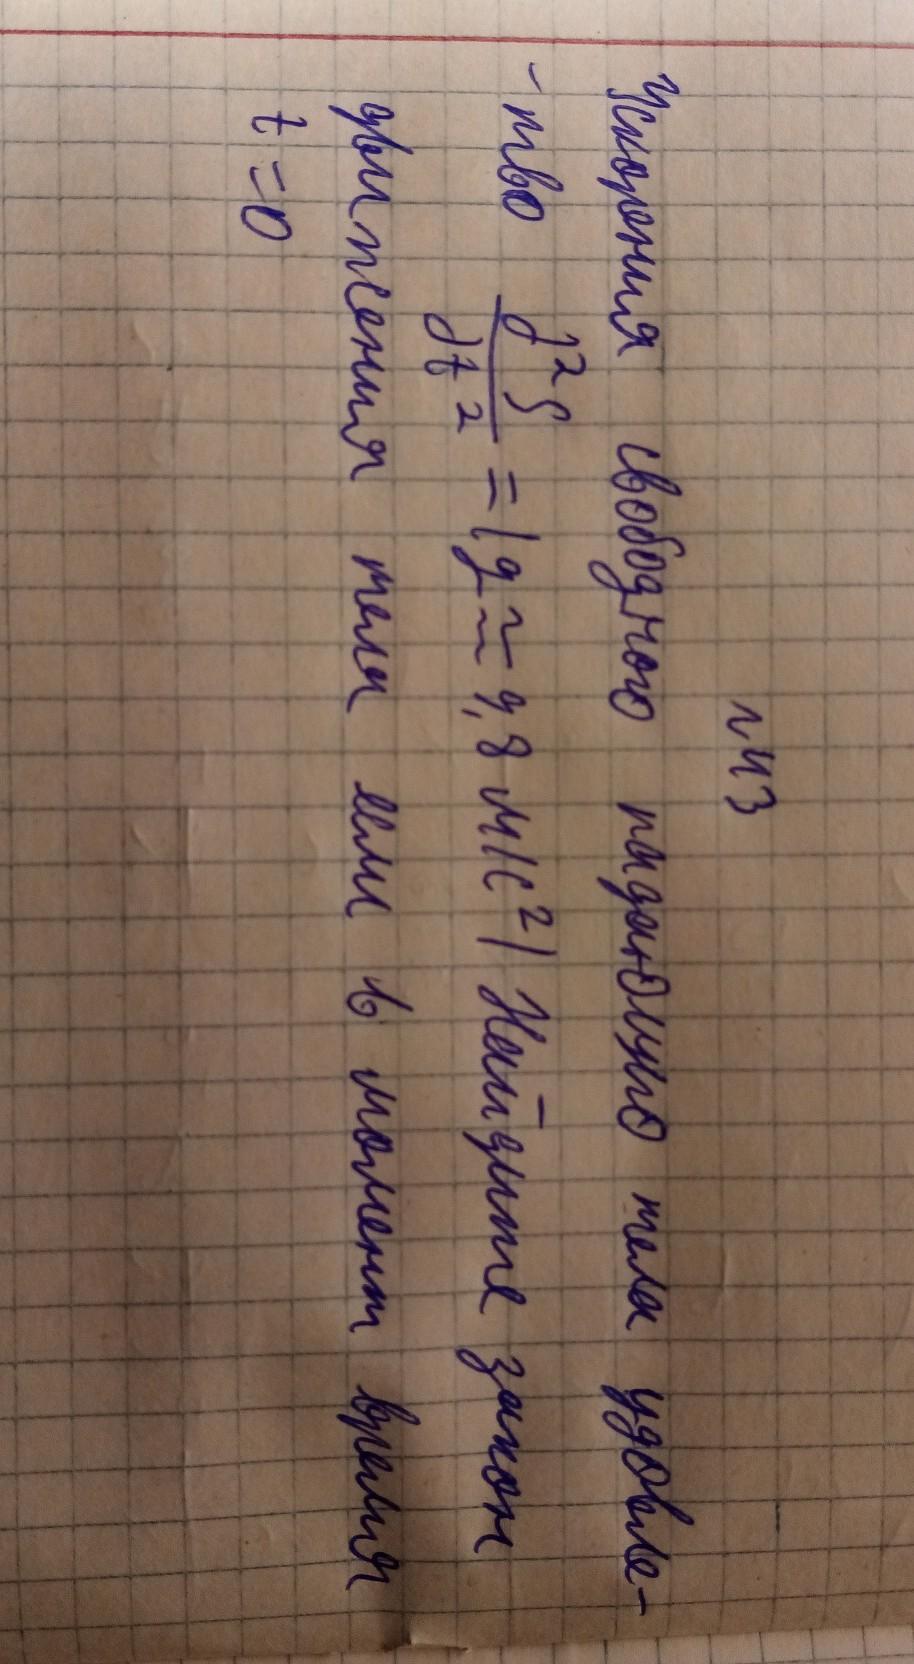 №3
Ускорения свободного падающего тела удовле-
-тво d²S/dt² = (g ≈ 9,8 м/с²) Найдите закон
движения тела если в момент время
t = 0